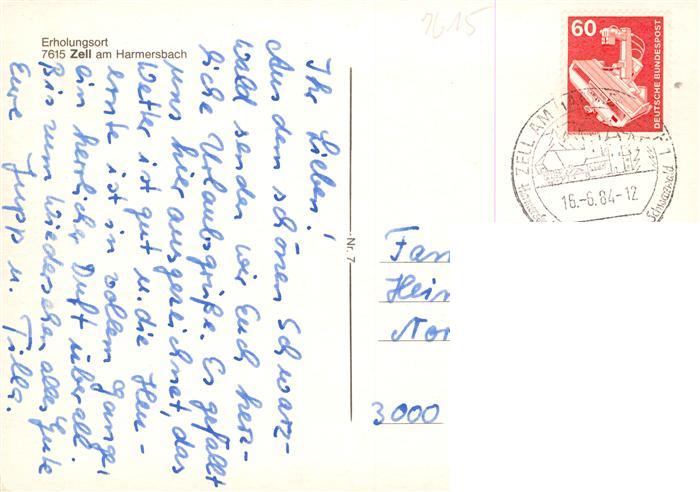 7615
Erholungsort
7615 Zell am Harmersbach
Ihr Lieben!
Aus dem schönen Schwarz-
wald senden wir Euch herz-
liche Urlaubsgrüße. Es gefällt
uns hier ausgezeichnet, das
Wetter ist gut u. die Heu-
ernte ist in vollem Gange,
ein herrlicher Duft überall.
Bis zum Wiedersehen alles Gute
Eure Jupp u. Tilla.
Nr. 7
60
DEUTSCHE BUNDESPOST
ZELL AM
1
16.-6.84-12
Schwarzwald
Fam
Hein
Nor
3000